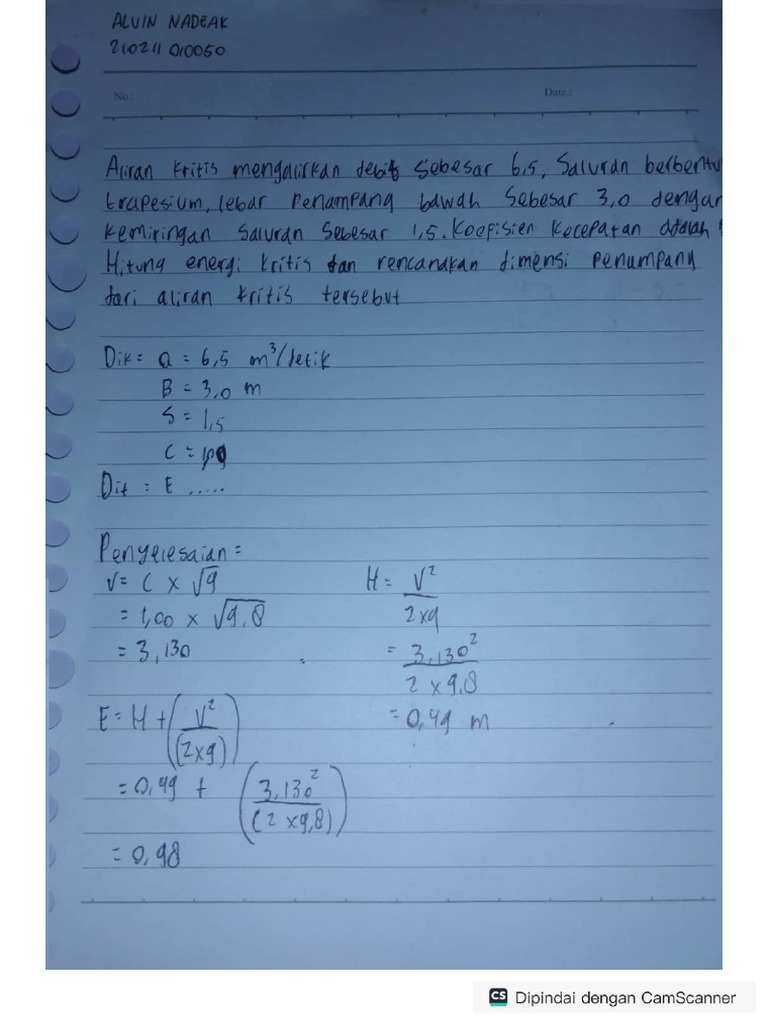 ALVIN NADEAK
210211 010050
No.:
Date.:
Aliran kritis mengalirkan debit sebesar 6,5, Saluran berbentu
trapesium, lebar penampang bawah sebesar 3,0 dengan
kemiringan saluran sebesar 1,5. Koefisien kecepatan adalah 1
Hitung energi kritis dan rencanakan dimensi penampang
dari aliran kritis tersebut
Dik = Q = 6,5 m³/detik
B = 3,0 m
S = 1,5
C =
Dit = E .....
Penyelesaian =
V = C × √g
H = V²/2×g
= 1,00 × √9,8
= 3,130
= 3,130²/2 × 9,8
E = H + (V²/(2×g))
= 0,49 m
= 0,49 + (3,130²/(2 × 9,8))
= 0,98
CS Dipindai dengan CamScanner